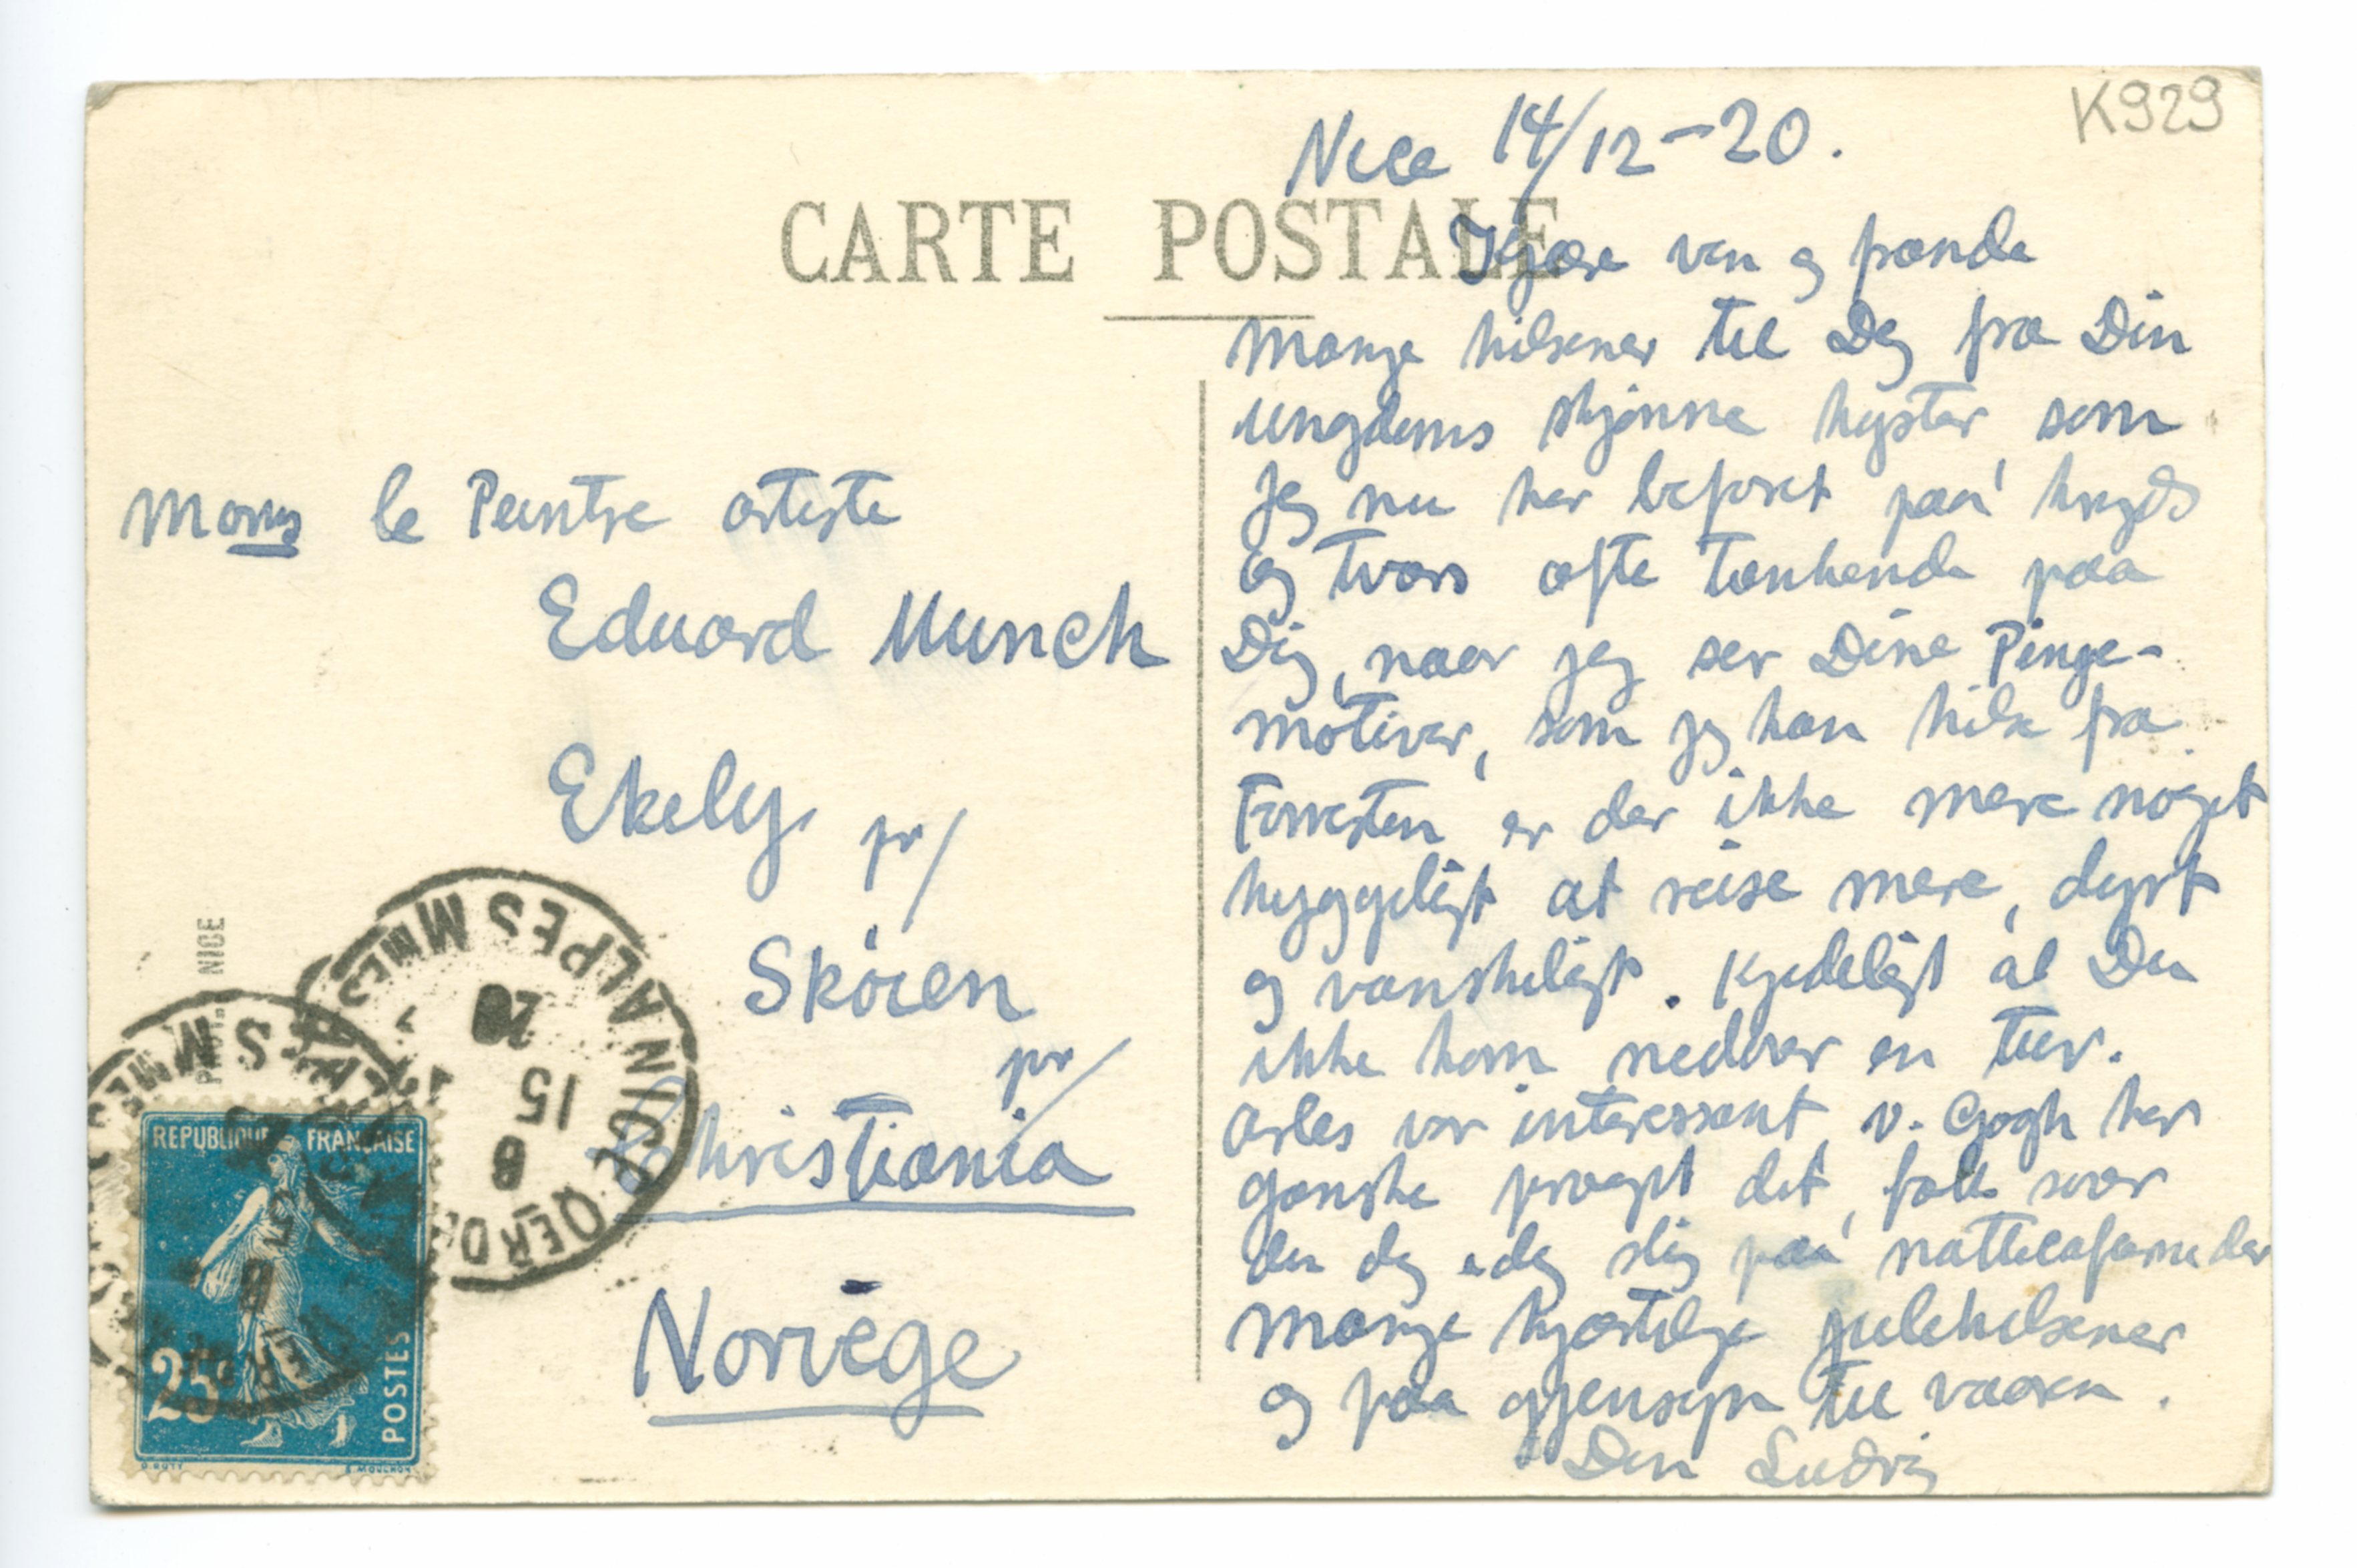 K929
CARTE POSTALE
Nice 14/12-20.
Kjære ven og frænde
Mange hilsener til Dig fra Din
ungdoms skjønne kyster, som
jeg nu har befaret paa kryds
og tvers ofte tænkende paa
Dig, naar jeg ser Dine Pinje-
motiver, som jeg kan hilse fra.
Forresten er der ikke mere noget
hyggeligt at reise mere, dyrt
og vanskeligt. Kjedeligt at Du
ikke kom nedover en tur.
Arles var interessant, v. Gogh har
ganske præget det, folk sover
den dag idag slig paa natkafeerne der
Mange hjærtelige julehilsener
og paa gjensyn til vaaren.
Din Ludvig
Mons le Peintre artiste
Eduard Munch
Ekely pr/
Skøien
pr/
Christiania
Norvège
NICE
ALPES MMES
15
20
8
REPUBLIQUE FRANÇAISE
25c
POSTES
O.ROTY E.MOUCHON